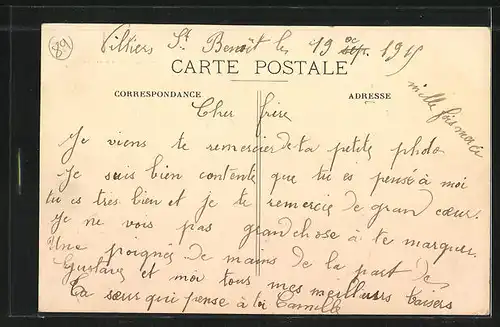 89
Villiers St Benoît les 19 oc sept. 1915
CARTE POSTALE
CORRESPONDANCE
ADRESSE
mille fois merci
Cher frère
Je viens te remercier de ta petite photo
Je suis bien contente que tu es pensé à moi
tu es très bien et je te remercie de grand cœur.
Je ne vois pas grand chose à te marquer.
Une poigne de mains de la part de
Gustave et moi tous mes meilleurs baisers
Ta sœur qui pense à toi Camille